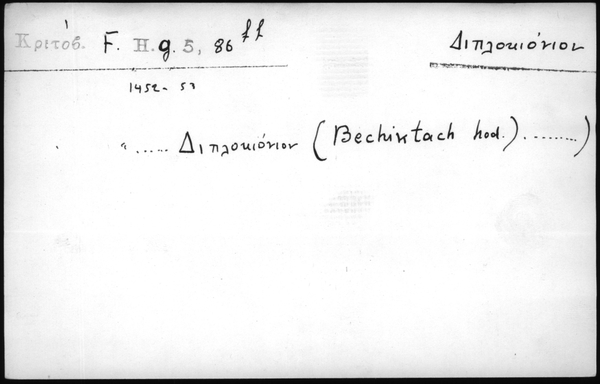 Κριτόβ. F. H. g. 5, 86 ff Διπλοκιόνιον
1452-53
" ..... Διπλοκιόνιον (Bechiktach hod.) ........)